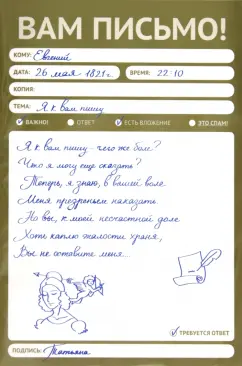 ВАМ ПИСЬМО!
КОМУ: Евгений
ДАТА: 26 мая 1821 г. ВРЕМЯ: 22:10
КОПИЯ:
ТЕМА: Я к вам пишу
ВАЖНО! ОТВЕТ ЕСТЬ ВЛОЖЕНИЕ ЭТО СПАМ!
Я к вам пишу – чего же боле?
Что я могу еще сказать?
Теперь, я знаю, в вашей воле
Меня презреньем наказать.
Но вы, к моей несчастной доле
Хоть каплю жалости храня,
Вы не оставите меня...
ТРЕБУЕТСЯ ОТВЕТ
ПОДПИСЬ: Татьяна